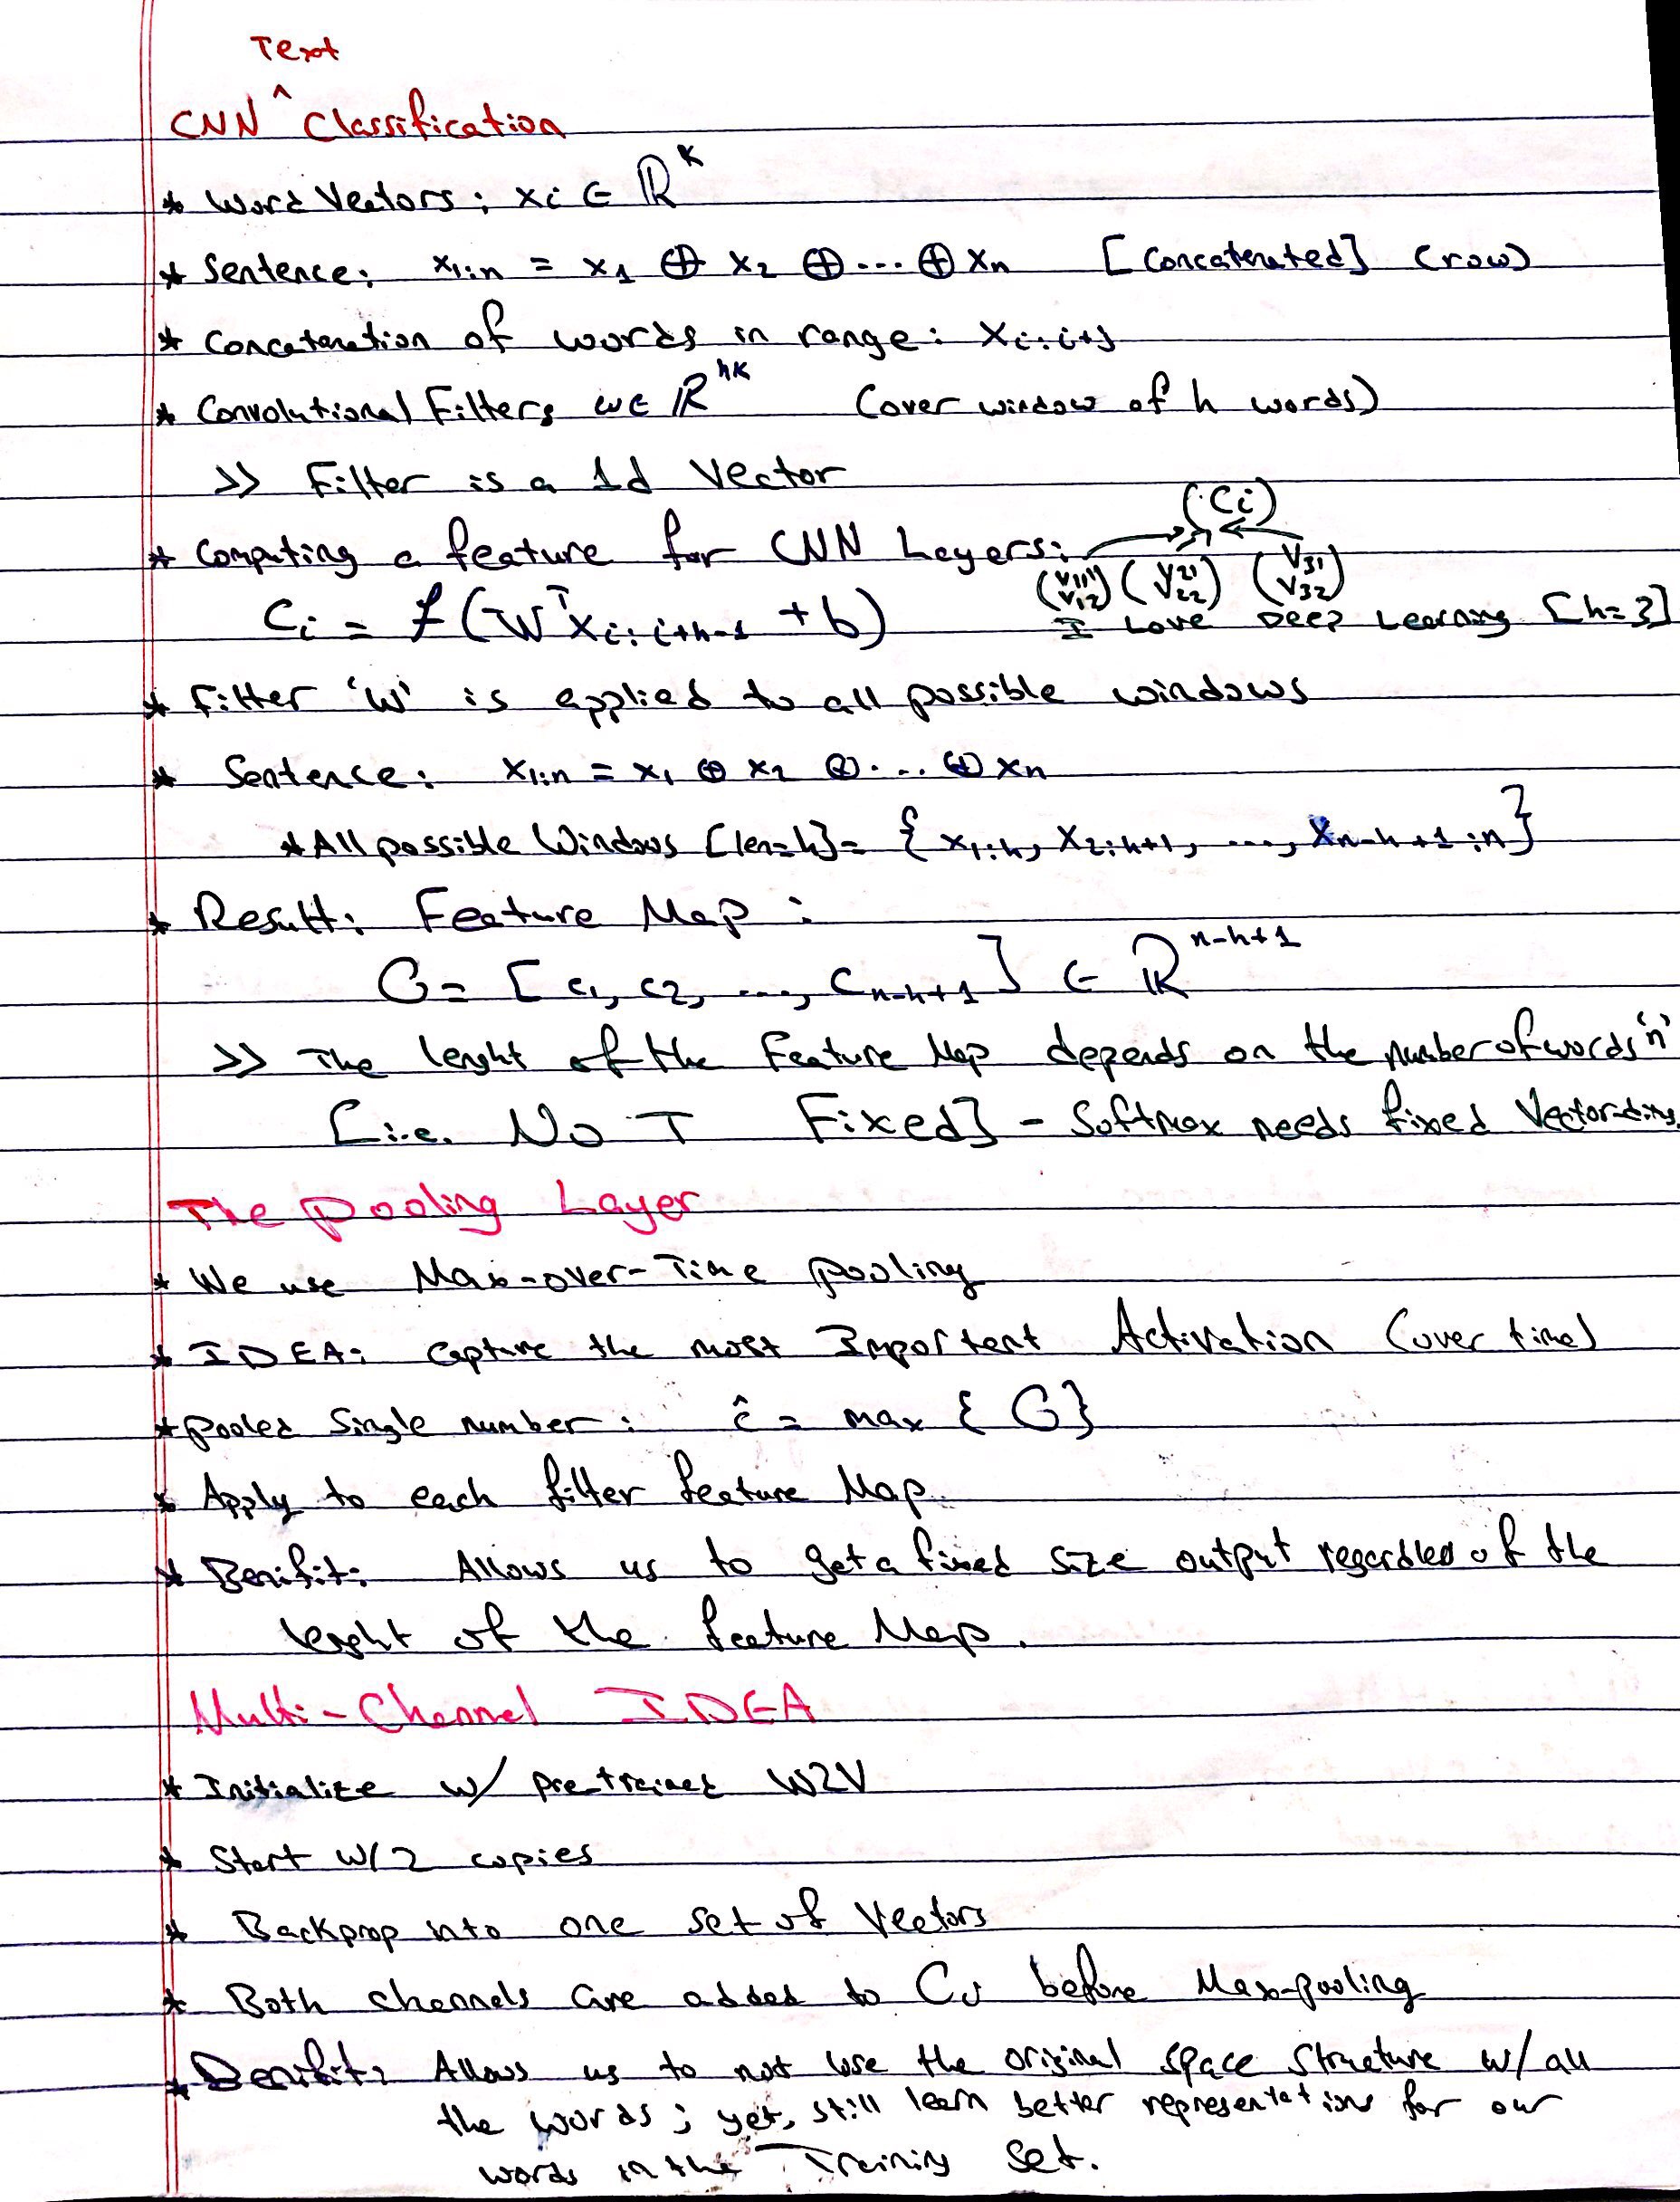 Text
CNN ^ Classification
* Word Vectors: xi ∈ ℝ^k
* Sentence: x1:n = x1 ⊕ x2 ⊕ ... ⊕ xn [Concatenated] (row)
* Concatenation of words in range: Xi:i+j
* Convolutional Filters w ∈ ℝ^hk (over window of h words)
>> Filter is a 1d Vector
* Computing a feature for CNN Layers:
(Ci)
(V11 V12) (V21 V22) (V31 V32)
I Love Deep Learning [h=3]
Ci = f(W^T Xi:i+h-1 + b)
* Filter 'W' is applied to all possible windows
* Sentence: X1:n = x1 ⊕ x2 ⊕ ... ⊕ xn
* All possible Windows [len=h] = { x1:h, X2:h+1, ..., Xn-h+1:n }
* Result: Feature Map :
C = [ c1, c2, ..., Cn-h+1 ] ∈ ℝ^n-h+1
>> The lenght of the Feature Map depends on the number of words 'n'
[i.e. NOT Fixed] - Softmax needs fixed Vector-dims
The Pooling Layer
* We use Max-over-Time pooling
* IDEA: Capture the most Important Activation (over time)
* pooled Single number : ĉ = max { C }
* Apply to each filter feature Map.
* Benifit: Allows us to get a fixed size output regardles of the
lenght of the feature Map.
Multi-Channel IDEA
* Initialize w/ pre-trained W2V
* Start w/ 2 copies
* Backprop into one set of Vectors
* Both channels are added to Ci before Max-pooling
* Benifit: Allows us to not lose the original space structure w/ all
the words; yet, still learn better representations for our
words in the Training set.